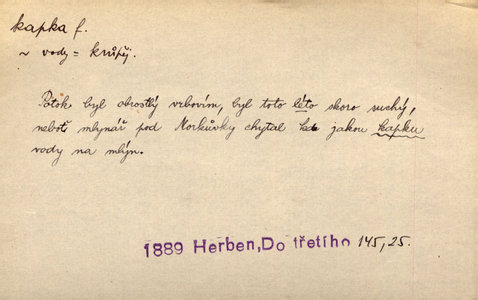 kapka f.
~ vody = krůpěj.
Potok byl obrostlý vrbovím, byl toto léto skoro suchý,
neboť mlynář pod Morkůvky chytal kde jakou kapku
vody na mlýn.
1889 Herben, Do třetího 145, 25.